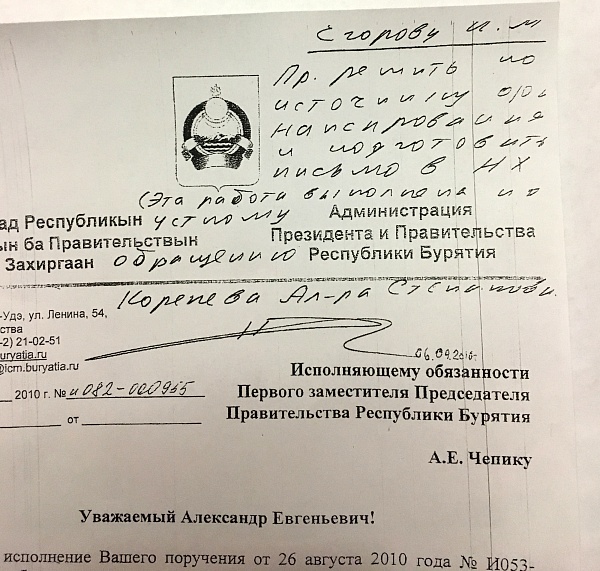 Егорову И.М
Пр. решить по
источнику фи
нансирования
и подготовить
письмо в НХ
(Эта работа выполнена по
устному
обращению
Коренева Ал-ра Степанови
06.09.2010г
ад Республикын
ын ба Правительствын
Захиргаан
Администрация
Президента и Правительства
Республики Бурятия
-Удэ, ул. Ленина, 54,
ства
-2) 21-02-51
buryatia.ru
@icm.buryatia.ru
2010 г. № и082-000955
от
Исполняющему обязанности
Первого заместителя Председателя
Правительства Республики Бурятия
А.Е. Чепику
Уважаемый Александр Евгеньевич!
исполнение Вашего поручения от 26 августа 2010 года № И053-